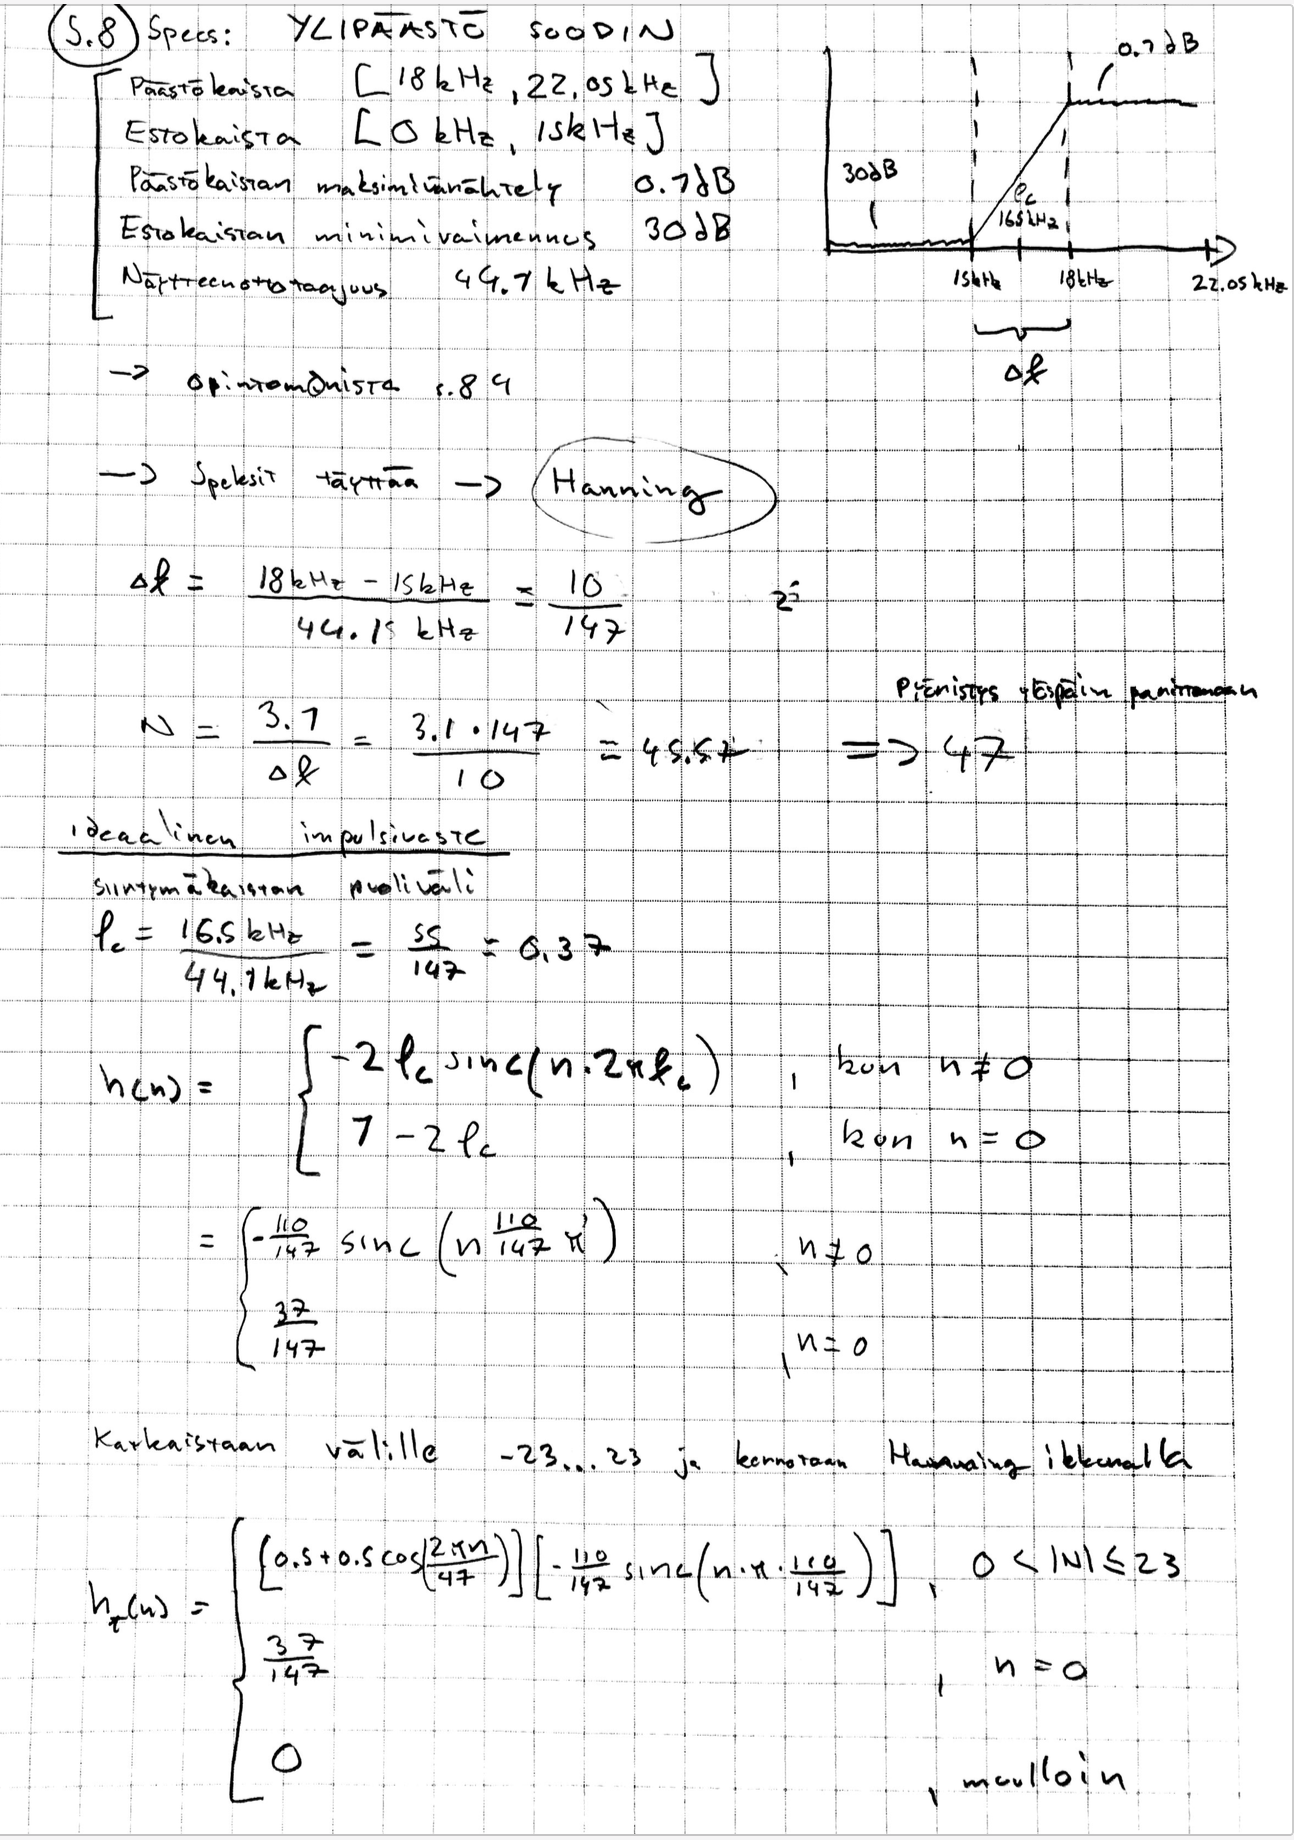 5.8) Specs: YLIPÄÄSTÖ SUODIN
Päästökaista [18 kHz, 22,05 kHz]
Estokaista [0 kHz, 15kHz]
Päästökaistan maksimivärähtely 0.1dB
Estokaistan minimivaimennus 30dB
Näytteenottotaajuus 44.1 kHz
0.1 dB
30dB
fc
16.5kHz
15kHz 18kHz 22.05 kHz
Δf
-> opintomonista s.84
-> Speksit täyttää -> Hanning
Δf = (18kHz - 15kHz) / (44.1 kHz) = 10/147
N = 3.1/Δf = (3.1 · 147)/10 = 45.57 => 47
Pyöristys ylöspäin parittomaan
ideaalinen impulsivaste
siirtymäkaistan puoliväli
fc = 16.5 kHz / 44.1kHz = 55/147 = 0,37
h(n) = { -2 fc sinc(n·2πfc) , kun n≠0
1 - 2 fc , kun n = 0
= { -110/147 sinc (n 110/147 π) , n≠0
37/147 , n=0
Katkaistaan välille -23...23 ja kerrotaan Hanning ikkunalla
ht(n) = { [0.5+0.5 cos(2πn/47)] [-110/147 sinc(n·π·110/147)] , 0 < |N| ≤ 23
37/147 , n = 0
0 , muulloin